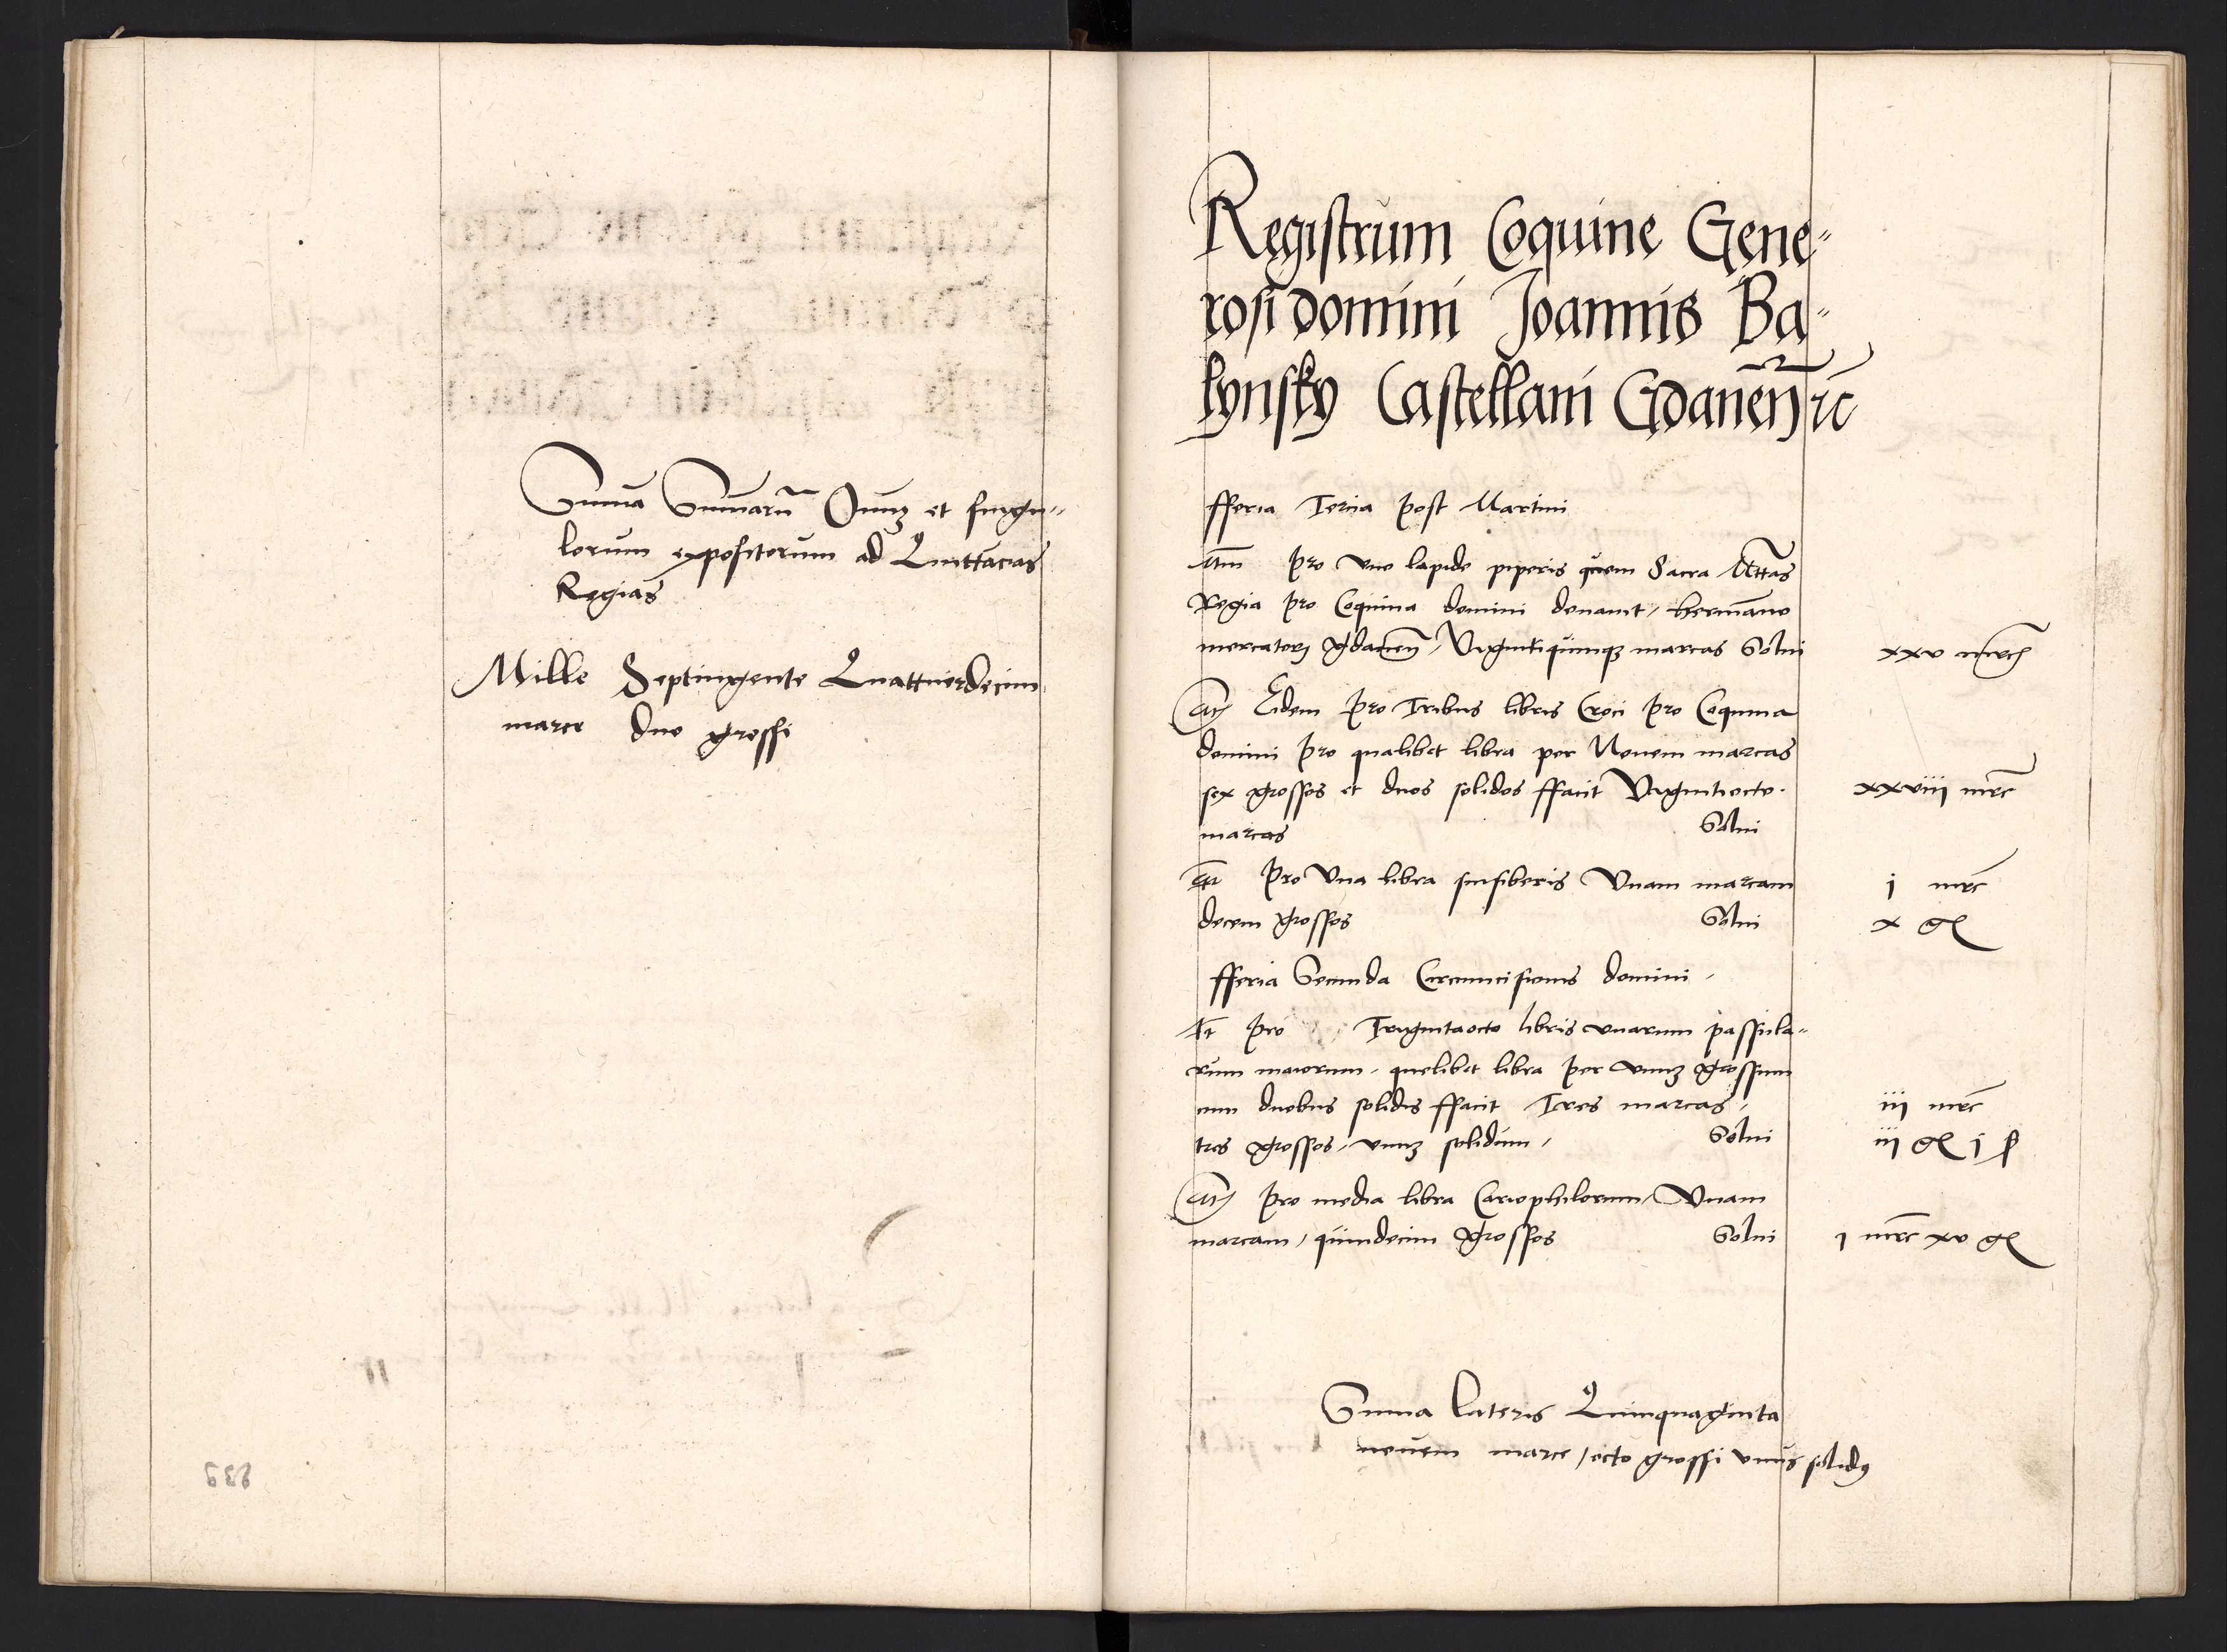 Suma Sumarū Oium̄ et singu-
lorum expositorum ad Quittācias
Regias
Mille Septingente Quattuordecim
marce duo grossi
Registrum Coquine Gene-
rosi domini Joannis Ba-
lynsky Castellani Gdaneñ ꝛc
fferia Tercia post Martini
Itm̄ pro vno lapide piperis quem Sacra Mttas
Regia pro Coquina domini donauit, hermāno
mercatorj gdaneñ, Vigintiquinqȝ marcas Solui
xxv mrc̄
Itē Eidem pro Tribus libris Croci pro Coquina
domini pro qualibet libra per Nouem marcas
sex grossos et duos solidos ffacit Vigintiocto
xxviij mrc̄
marcas Solui
Itē pro Vna libra sinsiberis Vnam marcam
j mrc̄
decem grossos Solui
x g
fferia Secunda Circumcisionis domini,
It̄ pro Trigintaocto libris vuarum passula-
rum maiorum, quelibet libra per vnuȝ grossum
cum duobus solidis ffacit Tres marcas,
iij mrc̄
tres grossos, vnuȝ solidum, Solui
iij g j ß
Itē pro media libra Cariophilorum, Vnam
marcam, quindecim grossos Solui
j mrc̄ xv g
Suma lateris Quinquaginta
nouem marce, octo grossi vnus solidꝯ
239